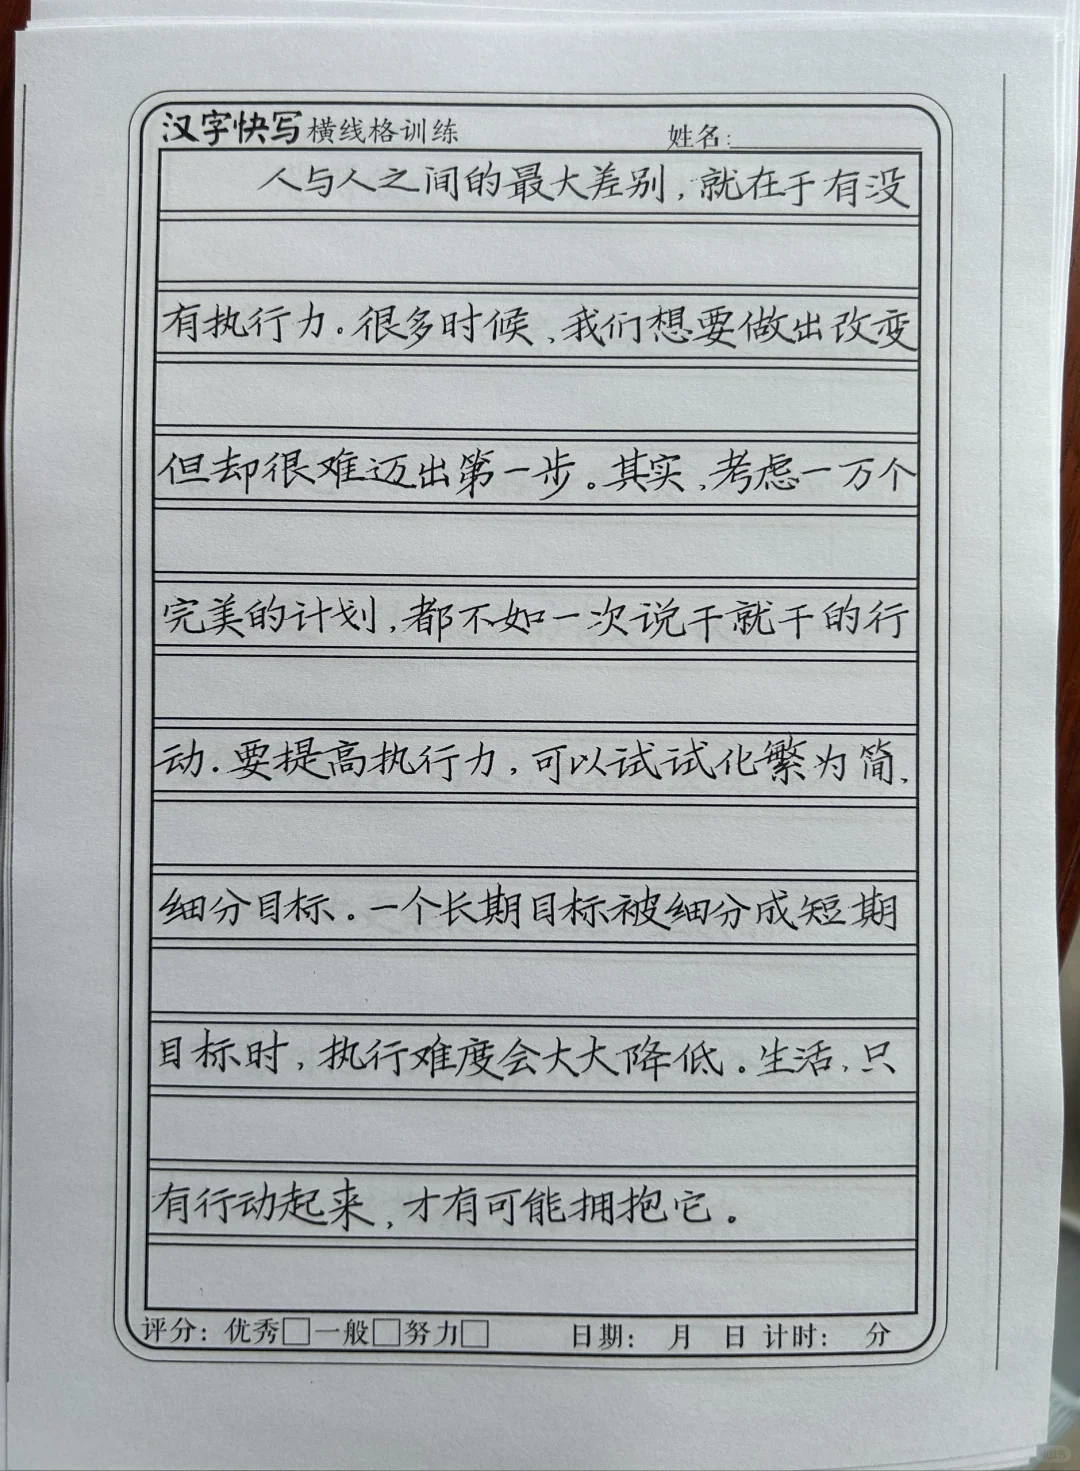 汉字快写横线格训练 姓名:
人与人之间的最大差别,就在于有没
有执行力。很多时候,我们想要做出改变
但却很难迈出第一步。其实,考虑一万个
完美的计划,都不如一次说干就干的行
动.要提高执行力,可以试试化繁为简、
细分目标。一个长期目标被细分成短期
目标时,执行难度会大大降低。生活,只
有行动起来,才有可能拥抱它。
评分: 优秀□一般□努力□ 日期: 月 日 计时: 分